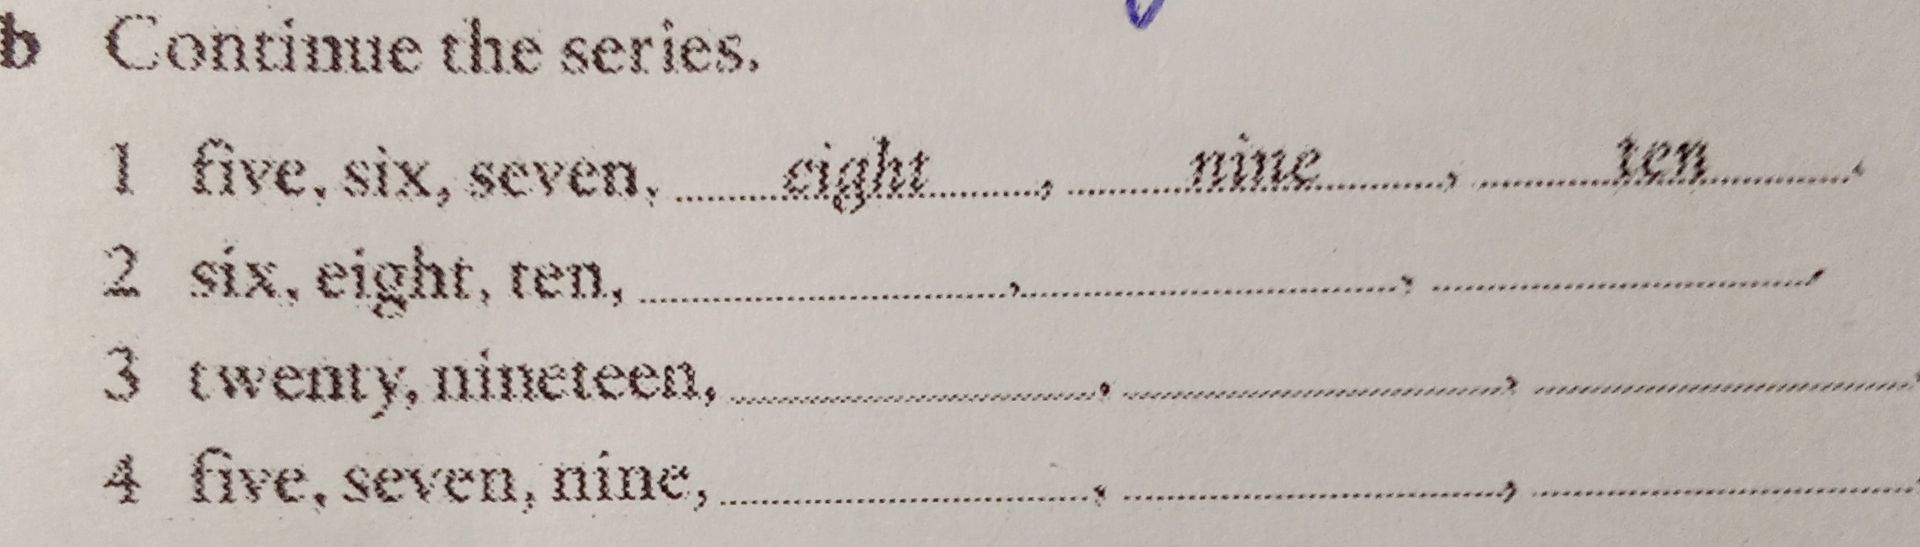 b Continue the series.
1 five, six, seven, eight, nine, ten.
2 six, eight, ten, ..........., ..........., ...........
3 twenty, nineteen, ..........., ..........., ...........
4 five, seven, nine, ..........., ..........., ...........